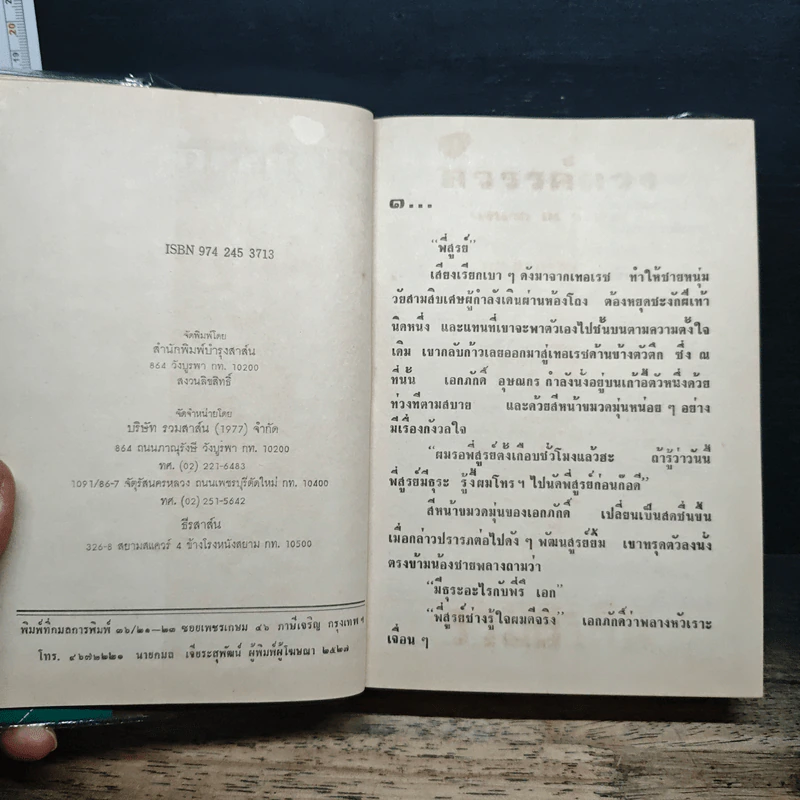 ISBN 974 245 3713
จัดพิมพ์โดย
สำนักพิมพ์บำรุงสาส์น
864 วังบูรพา กท. 10200
สงวนลิขสิทธิ์
จัดจำหน่ายโดย
บริษัท รวมสาส์น (1977) จำกัด
864 ถนนภาณุรังษี วังบูรพา กท. 10200
ทศ. (02) 221-6483
1091/86-7 จัตุรัสนครหลวง ถนนเพชรบุรีตัดใหม่ กท. 10400
ทศ. (02) 251-5642
ธีรสาส์น
326-8 สยามสแควร์ 4 ข้างโรงหนังสยาม กท. 10500
พิมพ์ที่กมลการพิมพ์ ๓๖/๒๑–๒๓ ซอยเพชรเกษม ๔๖ ภาษีเจริญ กรุงเทพ ฯ
โทร. ๔๖๗๒๒๒๑ นายกมล เจียระสุพัฒน์ ผู้พิมพ์ผู้โฆษณา ๒๕๒๗
๑...
“พี่สูรย์”
เสียงเรียกเบา ๆ ดังมาจากเทอเรซ ทำให้ชายหนุ่ม
วัยสามสิบเศษผู้กำลังเดินผ่านห้องโถง ต้องหยุดชะงักฝีเท้า
นิดหนึ่ง และแทนที่เขาจะพาตัวเองไปชั้นบนตามความตั้งใจ
เดิม เขากลับก้าวเลยออกมาสู่เทอเรซด้านข้างตัวตึก ซึ่ง ณ
ที่นั้น เอกภักดิ์ อุษณกร กำลังนั่งอยู่บนเก้าอี้ตัวหนึ่งด้วย
ท่วงทีตามสบาย และด้วยสีหน้าขมวดมุ่นหน่อย ๆ อย่าง
มีเรื่องกังวลใจ
“ผมรอพี่สูรย์ตั้งเกือบชั่วโมงแล้วฮะ ถ้ารู้ว่าวันนี้
พี่สูรย์มีธุระ รู้งี้ผมโทรฯ ไปนัดพี่สูรย์ก่อนก๊อดี”
สีหน้าขมวดมุ่นของเอกภักดิ์ เปลี่ยนเป็นสดชื่นขึ้น
เมื่อกล่าวปรารภต่อไปดัง ๆ พัฒนสูรย์ยิ้ม เขาทรุดตัวลงนั่ง
ตรงข้ามน้องชายพลางถามว่า
“มีธุระอะไรกับพี่รึ เอก”
“พี่สูรย์ช่างรู้ใจผมดีจริง” เอกภักดิ์ว่าพลางหัวเราะ
เจื่อน ๆ